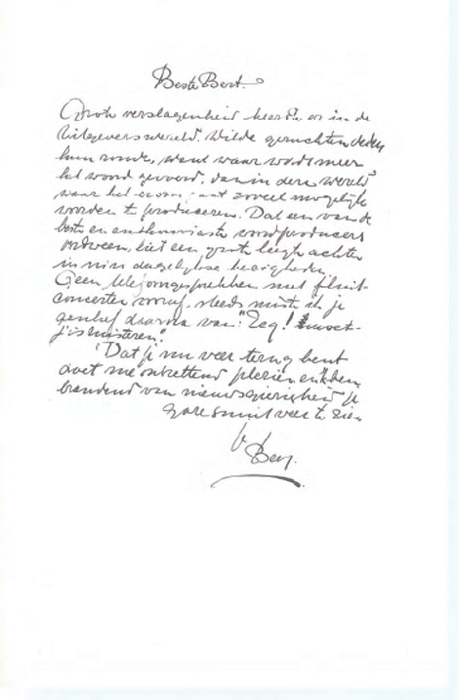 Beste Bert.
Grote verslagenheid heerste er in de
Uitgeverswereld. Wilde geruchten deden
hun ronde, want waar wordt meer
het woord gevoerd, dan in deze wereld
waar het erom gaat zoveel mogelijk
woorden te produceren. Dat een van de
beste en enthousiaste woordproducers
verdween, liet een grote leegte achter
in mijn dagelijkse bezigheden.
Geen telefoongesprekken met fluit-
concerten vooraf. steeds miste ik je
daarna van: "Zeg! moet
j'is luisteren".
Dat je nu weer terug bent
doet me ontzettend plezier en ik ben
brandend van nieuwsgierigheid je
gare smuil weer te zien
Ben.